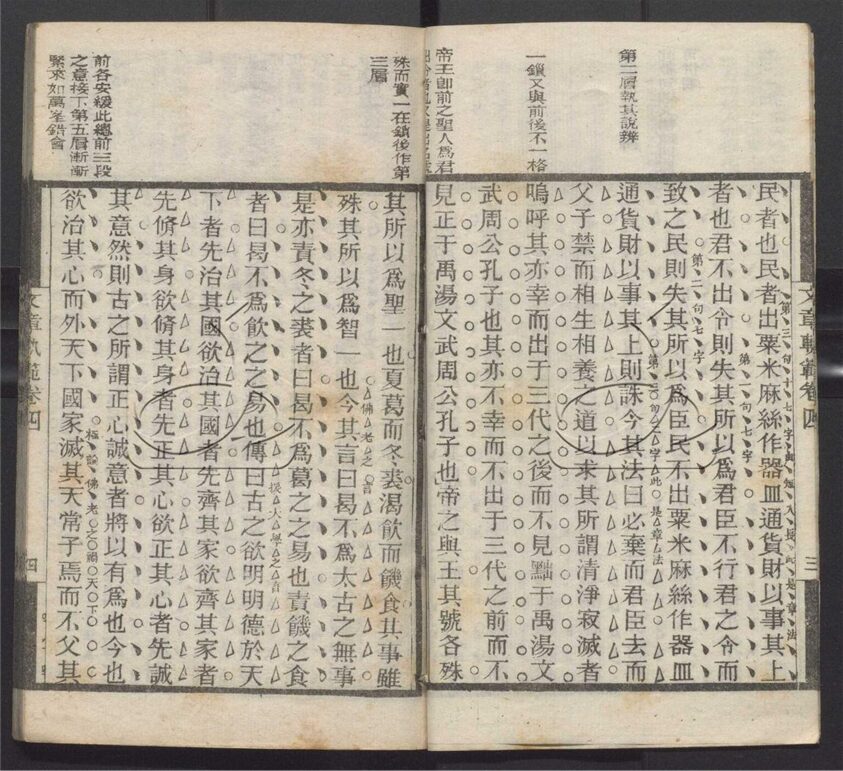 第二層執其說辨
一鎖又與前後不一格
帝王卽前之聖人爲君
文章軌範卷四
三
民者也民者出粟米麻絲作器皿通貨財以事其上
者也君不出令則失其所以爲君臣不行君之令而
第一句七字
致之民則失其所以爲臣民不出粟米麻絲作器皿
第二句七字
通貨財以事其上則誅今其法曰必棄而君臣去而
父子禁而相生相養之道以求其所謂清淨寂滅者
嗚呼其亦幸而出于三代之後而不見黜于禹湯文
武周公孔子也其亦不幸而不出于三代之前而不
見正于禹湯文武周公孔子也帝之與王其號各殊
殊而實一在鎖後作第
三層
前各安緩此總前三段
之意接下第五層漸漸
緊來如萬峯錯會
其所以爲聖一也夏葛而冬裘渴飮而饑食其事雖
殊其所以爲智一也今其言曰曷不爲太古之無事
佛老之言
是亦責冬之裘者曰曷不爲葛之之易也責饑之食
者曰曷不爲飮之之易也傳曰古之欲明明德於天
援大學之言
下者先治其國欲治其國者先齊其家欲齊其家者
先脩其身欲脩其身者先正其心欲正其心者先誠
其意然則古之所謂正心誠意者將以有爲也今也
欲治其心而外天下國家滅其天常子焉而不父其
極論佛老之禍天下
文章軌範卷四
四